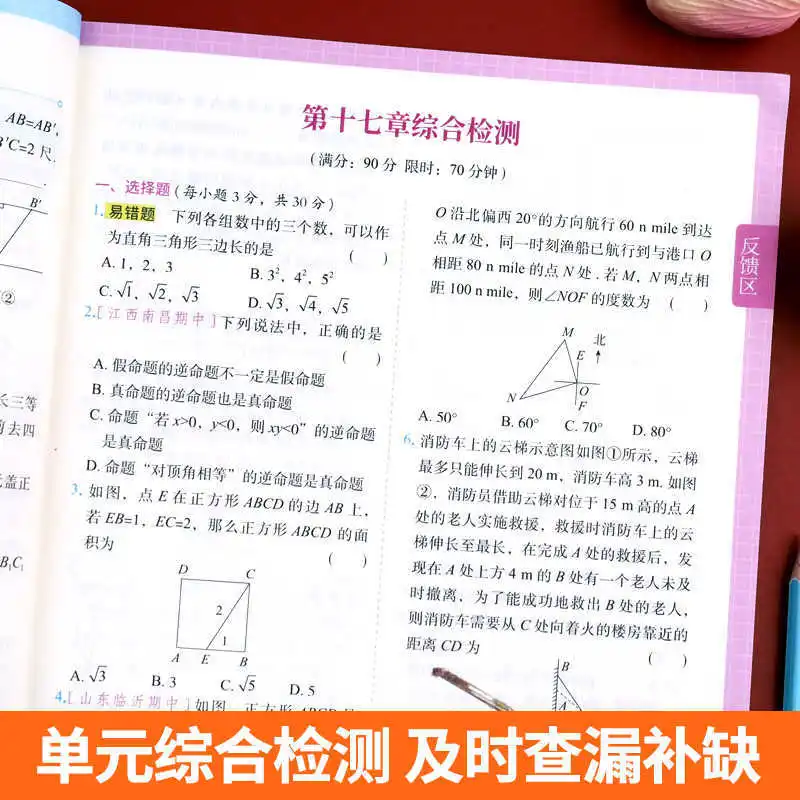 AB=AB′,
B′C=2 尺.
B′
②
长三等
剪去四
盖正
B₁C₁
第十七章综合检测
(满分：90分 限时：70分钟)
一、选择题(每小题3分，共30分)
1. 易错题 下列各组数中的三个数，可以作
为直角三角形三边长的是 ( )
A. 1，2，3 B. 3²，4²，5²
C. √1，√2，√3 D. √3，√4，√5
2.[江西南昌期中]下列说法中，正确的是
( )
A. 假命题的逆命题不一定是假命题
B. 真命题的逆命题也是真命题
C. 命题“若x>0，y<0，则xy<0”的逆命题
是真命题
D. 命题“对顶角相等”的逆命题是真命题
3. 如图，点E在正方形ABCD的边AB上，
若EB=1，EC=2，那么正方形ABCD的面
积为 ( )
D C
2
1
A E B
A. √3 B. 3 C. √5 D. 5
4.[山东临沂期中]如图，正方形ABCD是
O沿北偏西20°的方向航行60 n mile到达
点M处，同一时刻渔船已航行到与港口O
相距80 n mile的点N处.若M，N两点相
距100 n mile，则∠NOF的度数为 ( )
M 北
E
N O
F
A. 50° B. 60° C. 70° D. 80°
6. 消防车上的云梯示意图如图①所示，云梯
最多只能伸长到20 m，消防车高3 m. 如图
②，消防员借助云梯对位于15 m高的点A
处的老人实施救援，救援时消防车上的云
梯伸长至最长，在完成A处的救援后，发
现在A处上方4 m的B处有一个老人未及
时撤离，为了能成功地救出B处的老人，
则消防车需要从C处向着火的楼房靠近的
距离CD为 ( )
B
A
反馈区
单元综合检测 及时查漏补缺